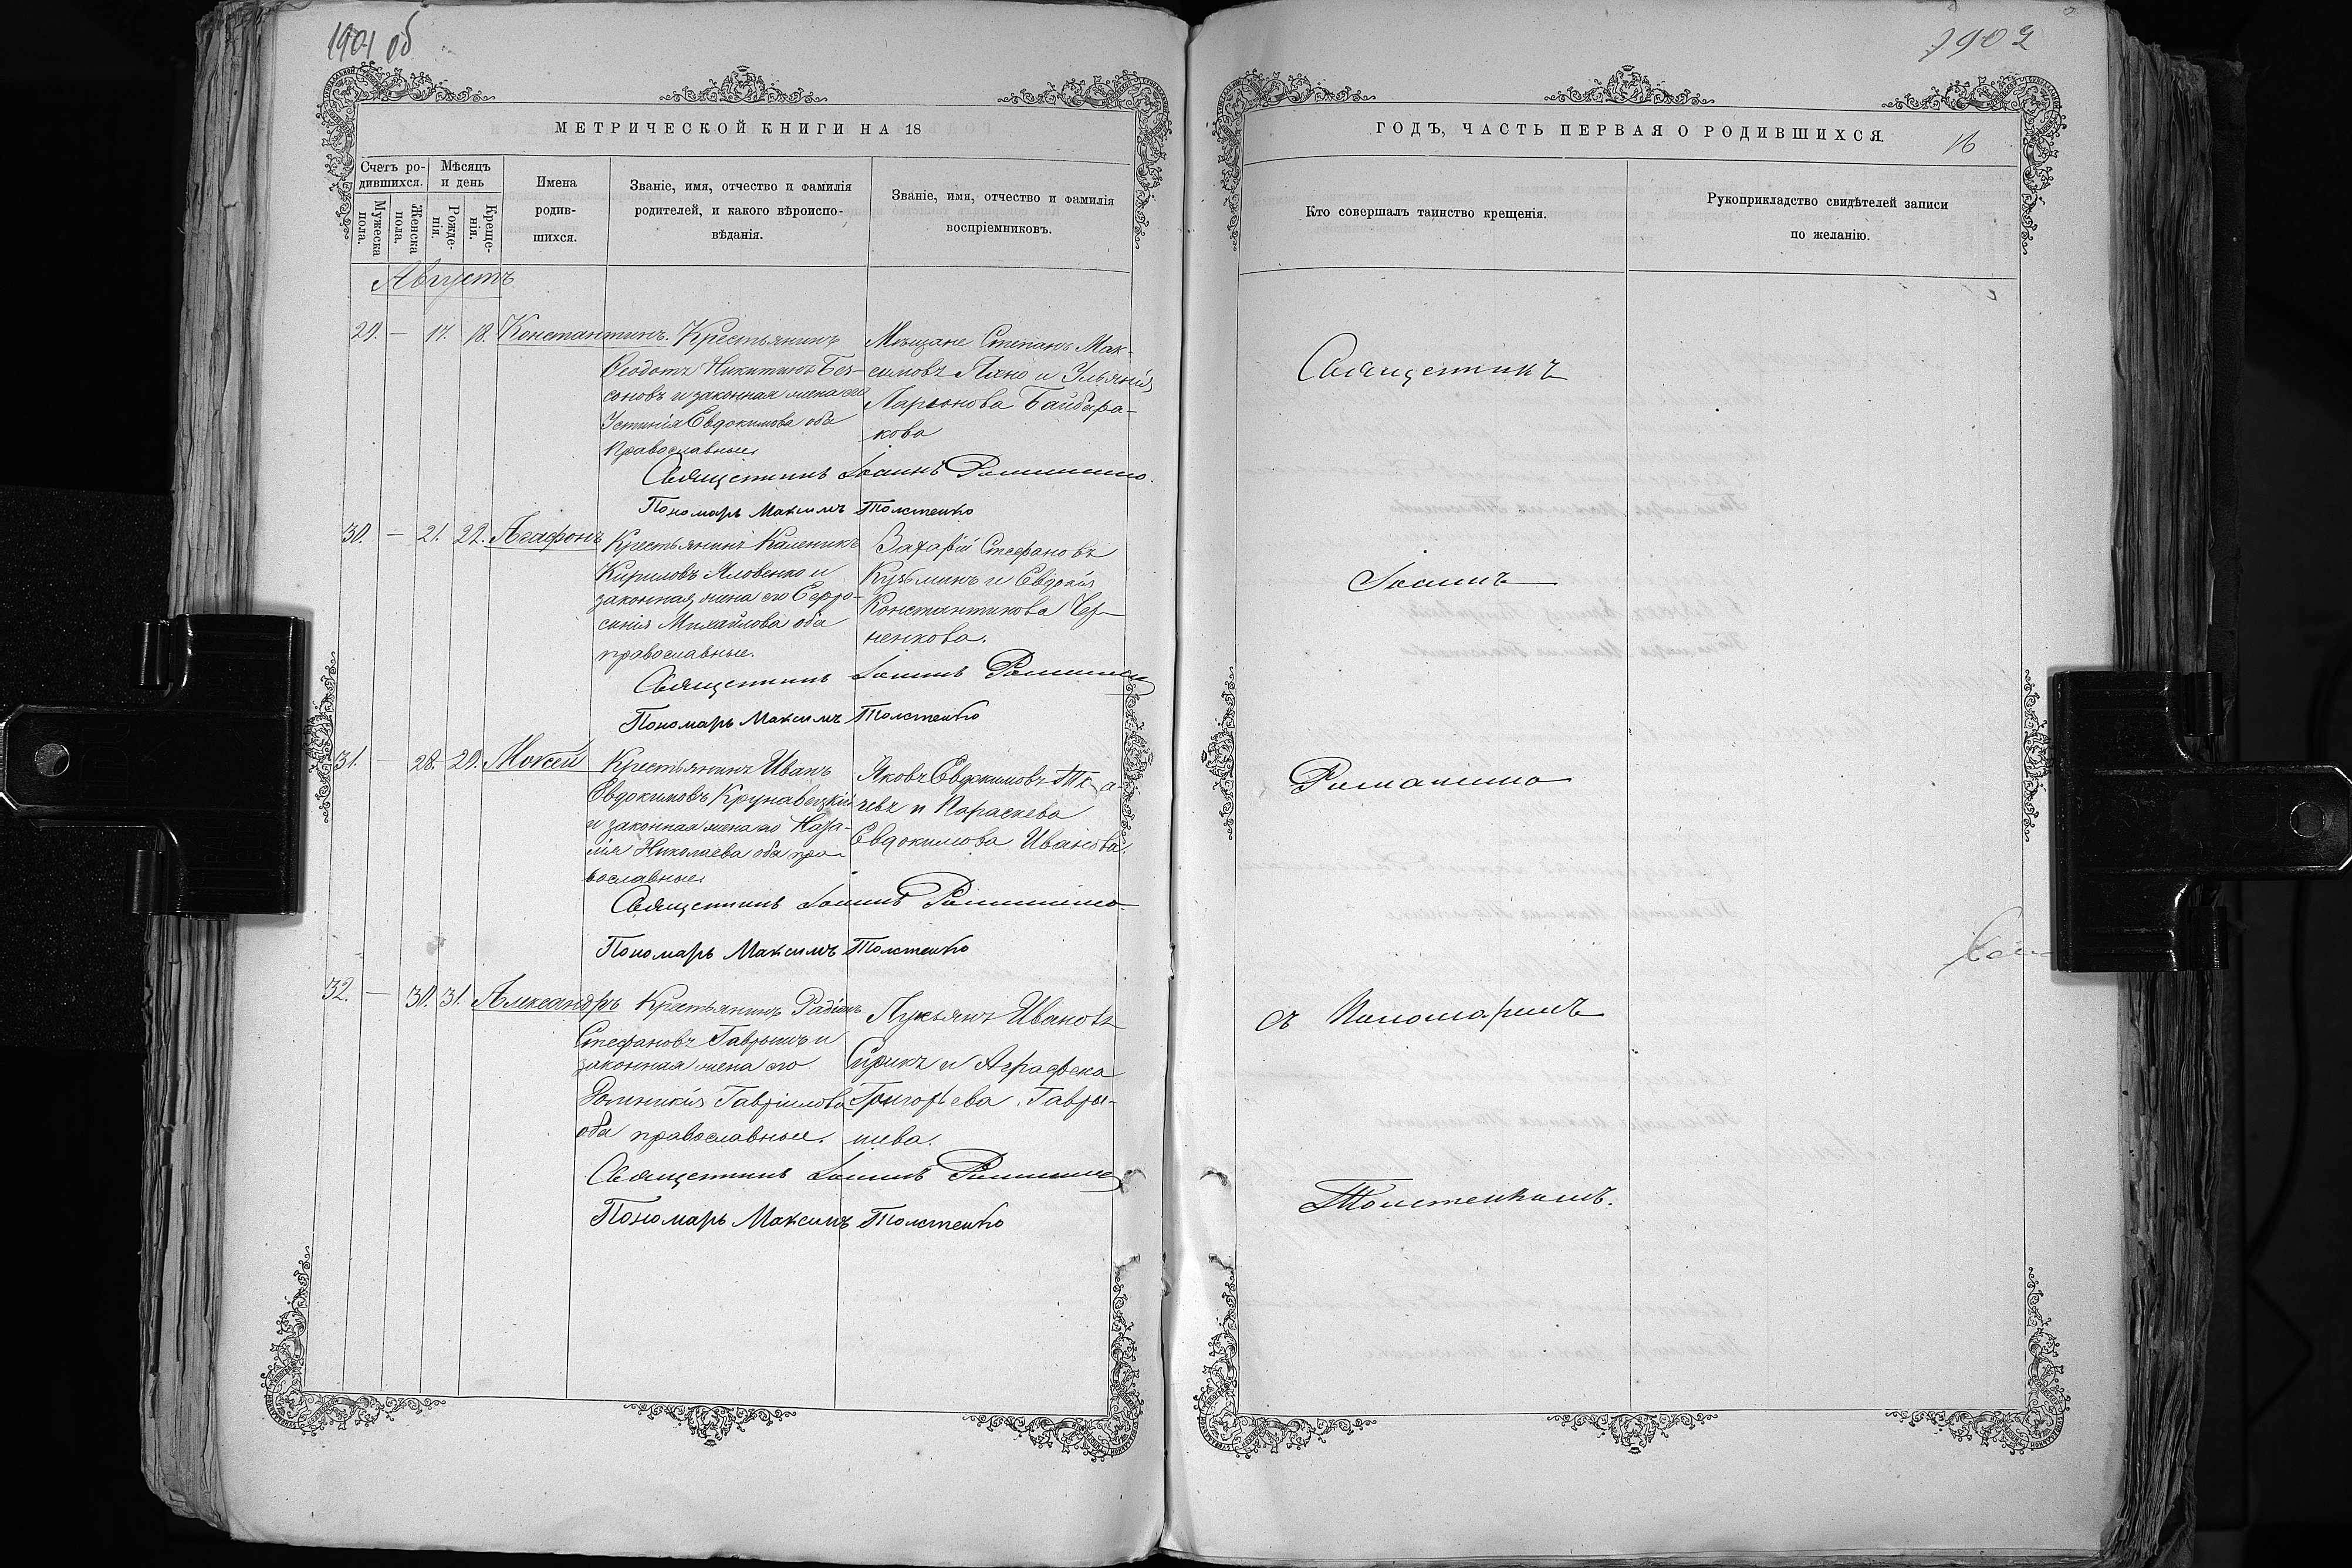 1901 об
МЕТРИЧЕСКОЙ КНИГИ НА 18
Счетъ ро-
дившихся.
Мѣсяцъ
и день
Мужеска
пола.
Женска
пола.
Рожде-
нія.
Креще-
нія.
Имена
родив-
шихся.
Званіе, имя, отчество и фамилія
родителей, и какого вѣроиспо-
вѣданія.
Званіе, имя, отчество и фамилія
воспріемниковъ.
Августъ
29. — 17. 18. Константинъ. Крестьянинъ
Ѳеодотъ Никитинъ Без-
соновъ и законная жена его
Устинія Евдокимова оба
православные
Мѣщане Степанъ Мак-
симовъ Лахно и Ульянія
Ларіонова Байбара-
кова
Священникъ Іоаннъ
Пономарь Максимъ Толстенко
30. — 21. 22. Агафонъ
Крестьянинъ Каленикъ
Кириловъ Яловенко и
законная жена его Евфро-
синія Михайлова оба
православные.
Захарій Стефановъ
Кузьминъ и Евдокія
Константинова Чер-
ненкова.
Священникъ Іоаннъ
Пономарь Максимъ Толстенко
31. — 28. 29. Моисей
Крестьянинъ Иванъ
Евдокимовъ Крунавецкій
и законная жена его Ната-
лія Николаева оба пра-
вославные
Яковъ Евдокимовъ Тка-
чевъ и Параскева
Евдокимова Иванова.
Священникъ Іоаннъ
Пономарь Максимъ Толстенко
32. — 30. 31. Александръ
Крестьянинъ Радіонъ
Стефановъ Гаврышъ и
законная жена его
Домникія Гавріилова
оба православные.
Лукьянъ Ивановъ
Сирикъ и Аграфена
Григорьева Гавры-
шева.
Священникъ Іоаннъ
Пономарь Максимъ Толстенко
1902
ГОДЪ, ЧАСТЬ ПЕРВАЯ О РОДИВШИХСЯ.
16
Кто совершалъ таинство крещенія.
Рукоприкладство свидѣтелей записи
по желанію.
Священникъ
Іоаннъ
съ Пономаремъ
Толстенкомъ.